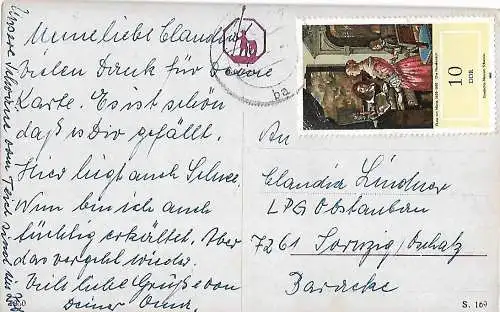 Meine liebe Claudia!
Vielen Dank für Deine
Karte. Es ist schön
daß es Dir gefällt.
Hier liegt auch Schnee.
Nun bin ich auch
tüchtig erkältet. Aber
das vergeht wieder.
Viele liebe Grüße von
Deiner Oma.
Unsere Schwäne vom Teich sind im
An
Claudia Lindner
LPG Obstanbau
7261 Sornzig/Oschatz
Baracke
10
DDR
ba
S. 169